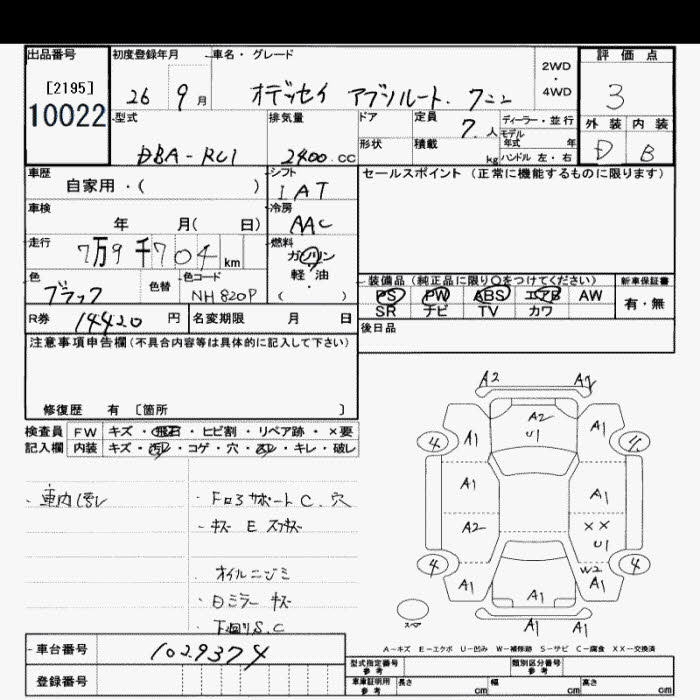 出品番号 初度登録年月 車名・グレード 評価点
[2195] 2WD・4WD
10022 26 9月 オデッセイ アブソルート. 7ニン 3
型式 排気量 ドア 定員 7.人 ディーラー・並行 外装 内装
モデル年式 年
DBA-RC1 2400.cc 形状 積載 kg ハンドル 左・右 D B
車歴 シフト セールスポイント (正常に機能するものに限ります)
自家用・( ) IAT
車検 冷房
年 月( 日) AAC
走行 燃料
7万9千704km ガソリン
軽・油
色 色替 色コード ( ) 装備品 (純正品に限り○をつけてください) 新車保証書
ブラック NH820P PS PW ABS エアB AW 有・無
R券 14420円 名変期限 月 日 SR ナビ TV カワ
注意事項申告欄(不具合内容等は具体的に記入して下さい) 後日品
修復歴 有 [箇所 ]
検査員 FW キズ・飛石・ヒビ割・リペア跡・×要
記入欄 内装 キズ・汚レ・コゲ・穴・スレ・キレ・破レ
A2 A2
A2
U1
4 A1 A1 4
A1 A1
A2 XX
U1
4 W2 4
A1 A1 A1
A1 A1
スペア
・車内汚レ ・Fロアサポート C.穴
・キズ E スリキズ
オイルニジミ
・Dミラー キズ
・下廻りS.C
A-キズ E-エクボ U-凹み W-補修跡 S-サビ C-腐食 XX-交換済
車台番号 1029374 型式指定番号 参考 類別区分番号 参考
登録番号 車庫証明用 参考 長さ cm 幅 cm 高さ cm